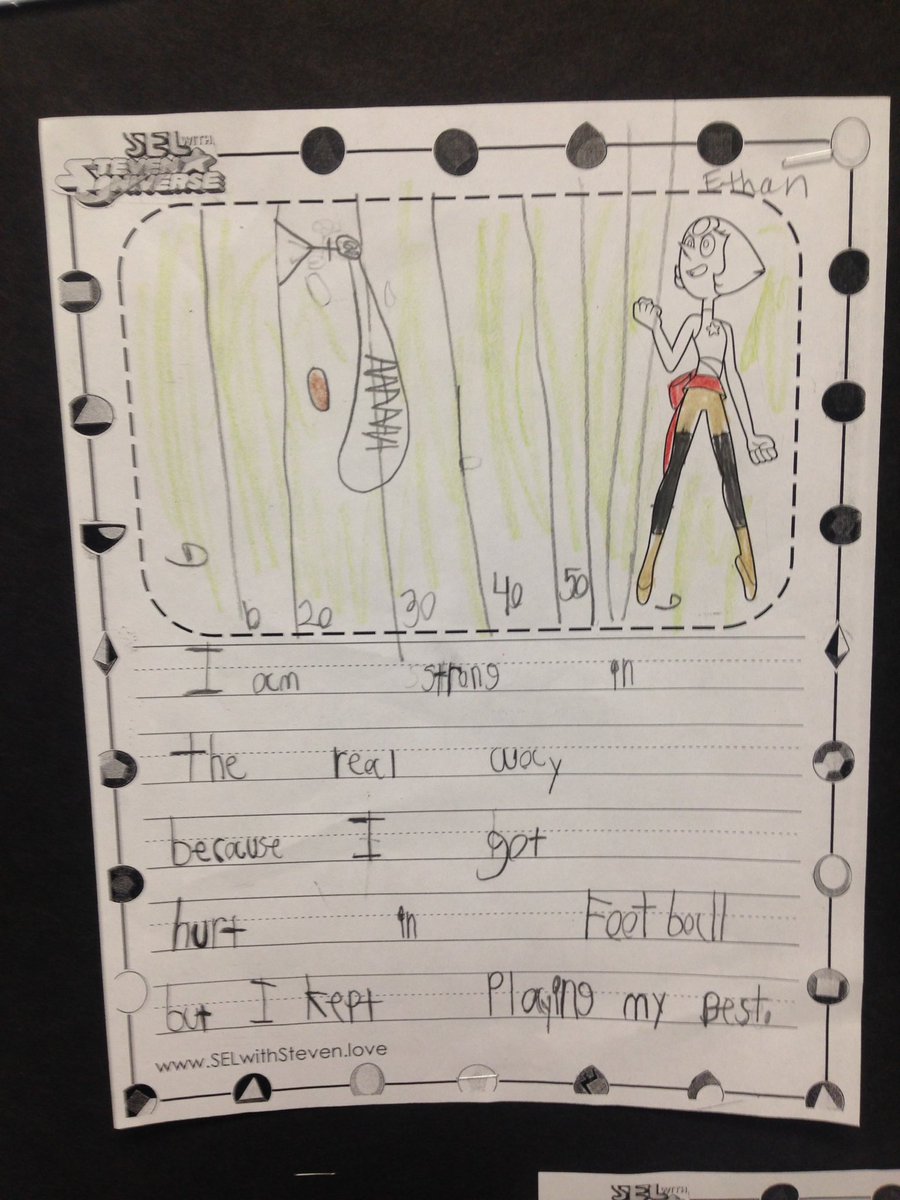 SEL WITH
STEVEN
UNIVERSE
Ethan
G 10 20 30 40 50 G
I am strong in
the real way
because I got
hurt in Foot ball
but I kept Playing my Best.
www.SELwithSteven.love
SEL WITH